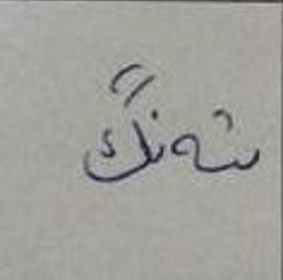 شەنگ